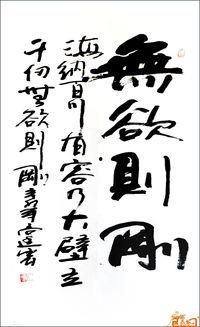 無欲則剛
海納百川有容乃大壁立
千仞無欲則剛